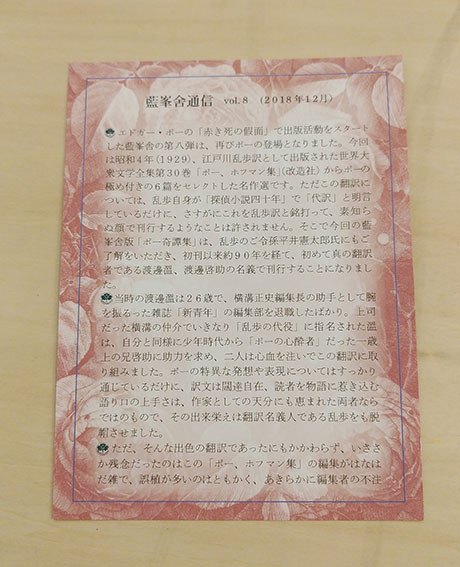 藍峯舎通信 vol.8 (2018年12月)
エドガー・ポーの「赤き死の假面」で出版活動をスタート
した藍峯舎の第八弾は、再びポーの登場となりました。今回
は昭和4年(1929)、江戸川乱歩訳として出版された世界大
衆文学全集第30巻「ポー、ホフマン集」(改造社)からポーの
極め付きの6篇をセレクトした名作選です。ただこの翻訳に
ついては、乱歩自身が「探偵小説四十年」で「代訳」と明言
しているだけに、さすがにこれを乱歩訳と銘打って、素知ら
ぬ顔で刊行するようなことは許されません。そこで今回の藍
峯舎版「ポー奇譚集」は、乱歩のご令孫平井憲太郎氏にもご
了解をいただき、初刊以来約90年を経て、初めて真の翻訳
者である渡邊温、渡邊啓助の名義で刊行することになりまし
た。
当時の渡邊温は26歳で、横溝正史編集長の助手として腕
を振るった雑誌「新青年」の編集部を退職したばかり。上司
だった横溝の仲介でいきなり「乱歩の代役」に指名された温
は、自分と同様に少年時代から「ポーの心酔者」だった一歳
上の兄啓助に助力を求め、二人は心血を注いでこの翻訳に取
り組みました。ポーの特異な発想や表現についてはすっかり
通じているだけに、訳文は闊達自在、読者を物語に惹き込む
語り口の上手さは、作家としての天分にも恵まれた両者なら
ではのもので、その出来栄えは翻訳名義人である乱歩をも脱
帽させました。
ただ、そんな出色の翻訳であったにもかかわらず、いささ
か残念だったのはこの「ポー、ホフマン集」の編集がはなは
だ雑で、誤植が多いのはともかく、あきらかに編集者の不注